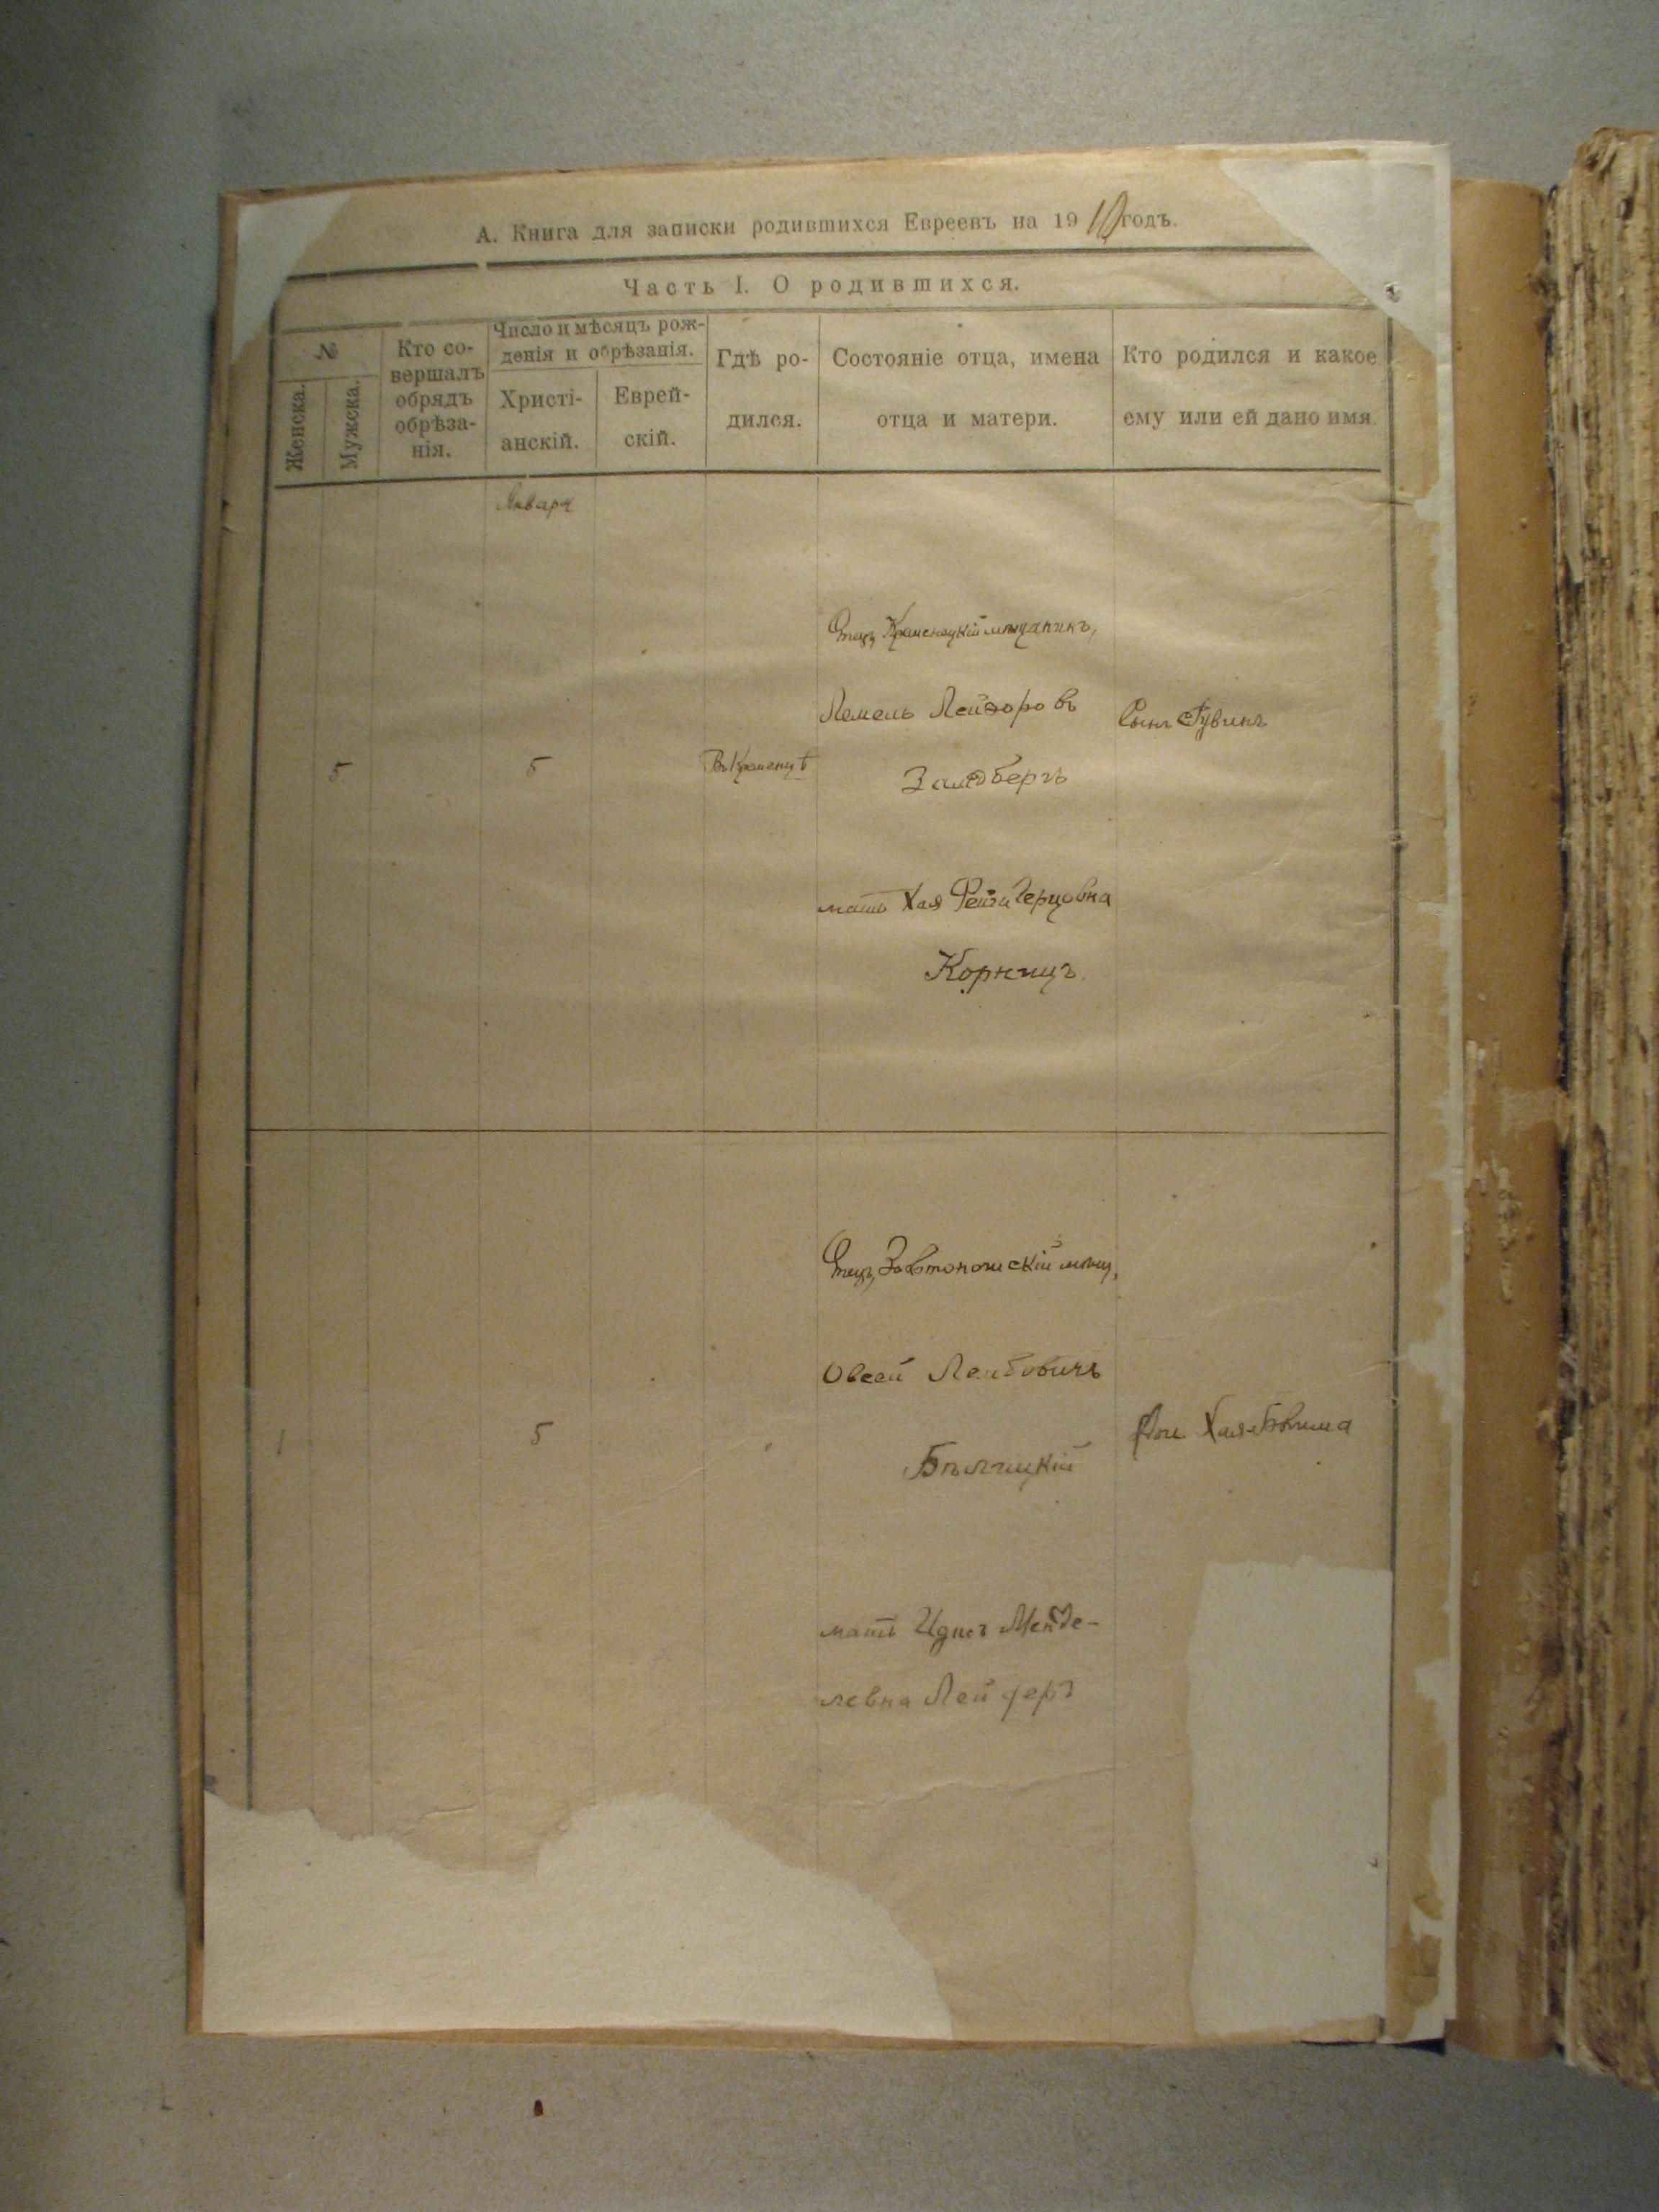 А. Книга для записки родившихся Евреевъ на 1910 годъ.
Часть I. О родившихся.
№
Женска.
Мужска.
Кто со-
вершалъ
обрядъ
обрѣза-
нія.
Число и мѣсяцъ рож-
денія и обрѣзанія.
Христі-
анскій.
Еврей-
скій.
Гдѣ ро-
дился.
Состояніе отца, имена
отца и матери.
Кто родился и какое
ему или ей дано имя.
Января
5
5
Въ Кременцѣ
Отецъ, Кременецкій мѣщанинъ,
Лемель Лейзоровъ
Залдбергъ
мать Хая Фейга Герцовна
Корницъ.
Сынъ Рувинъ
1
5
Отецъ,
Овсей Лейбовичъ
Бѣлчицкій
мать Идисъ Менде-
левна Лейферъ
Доч. Хая